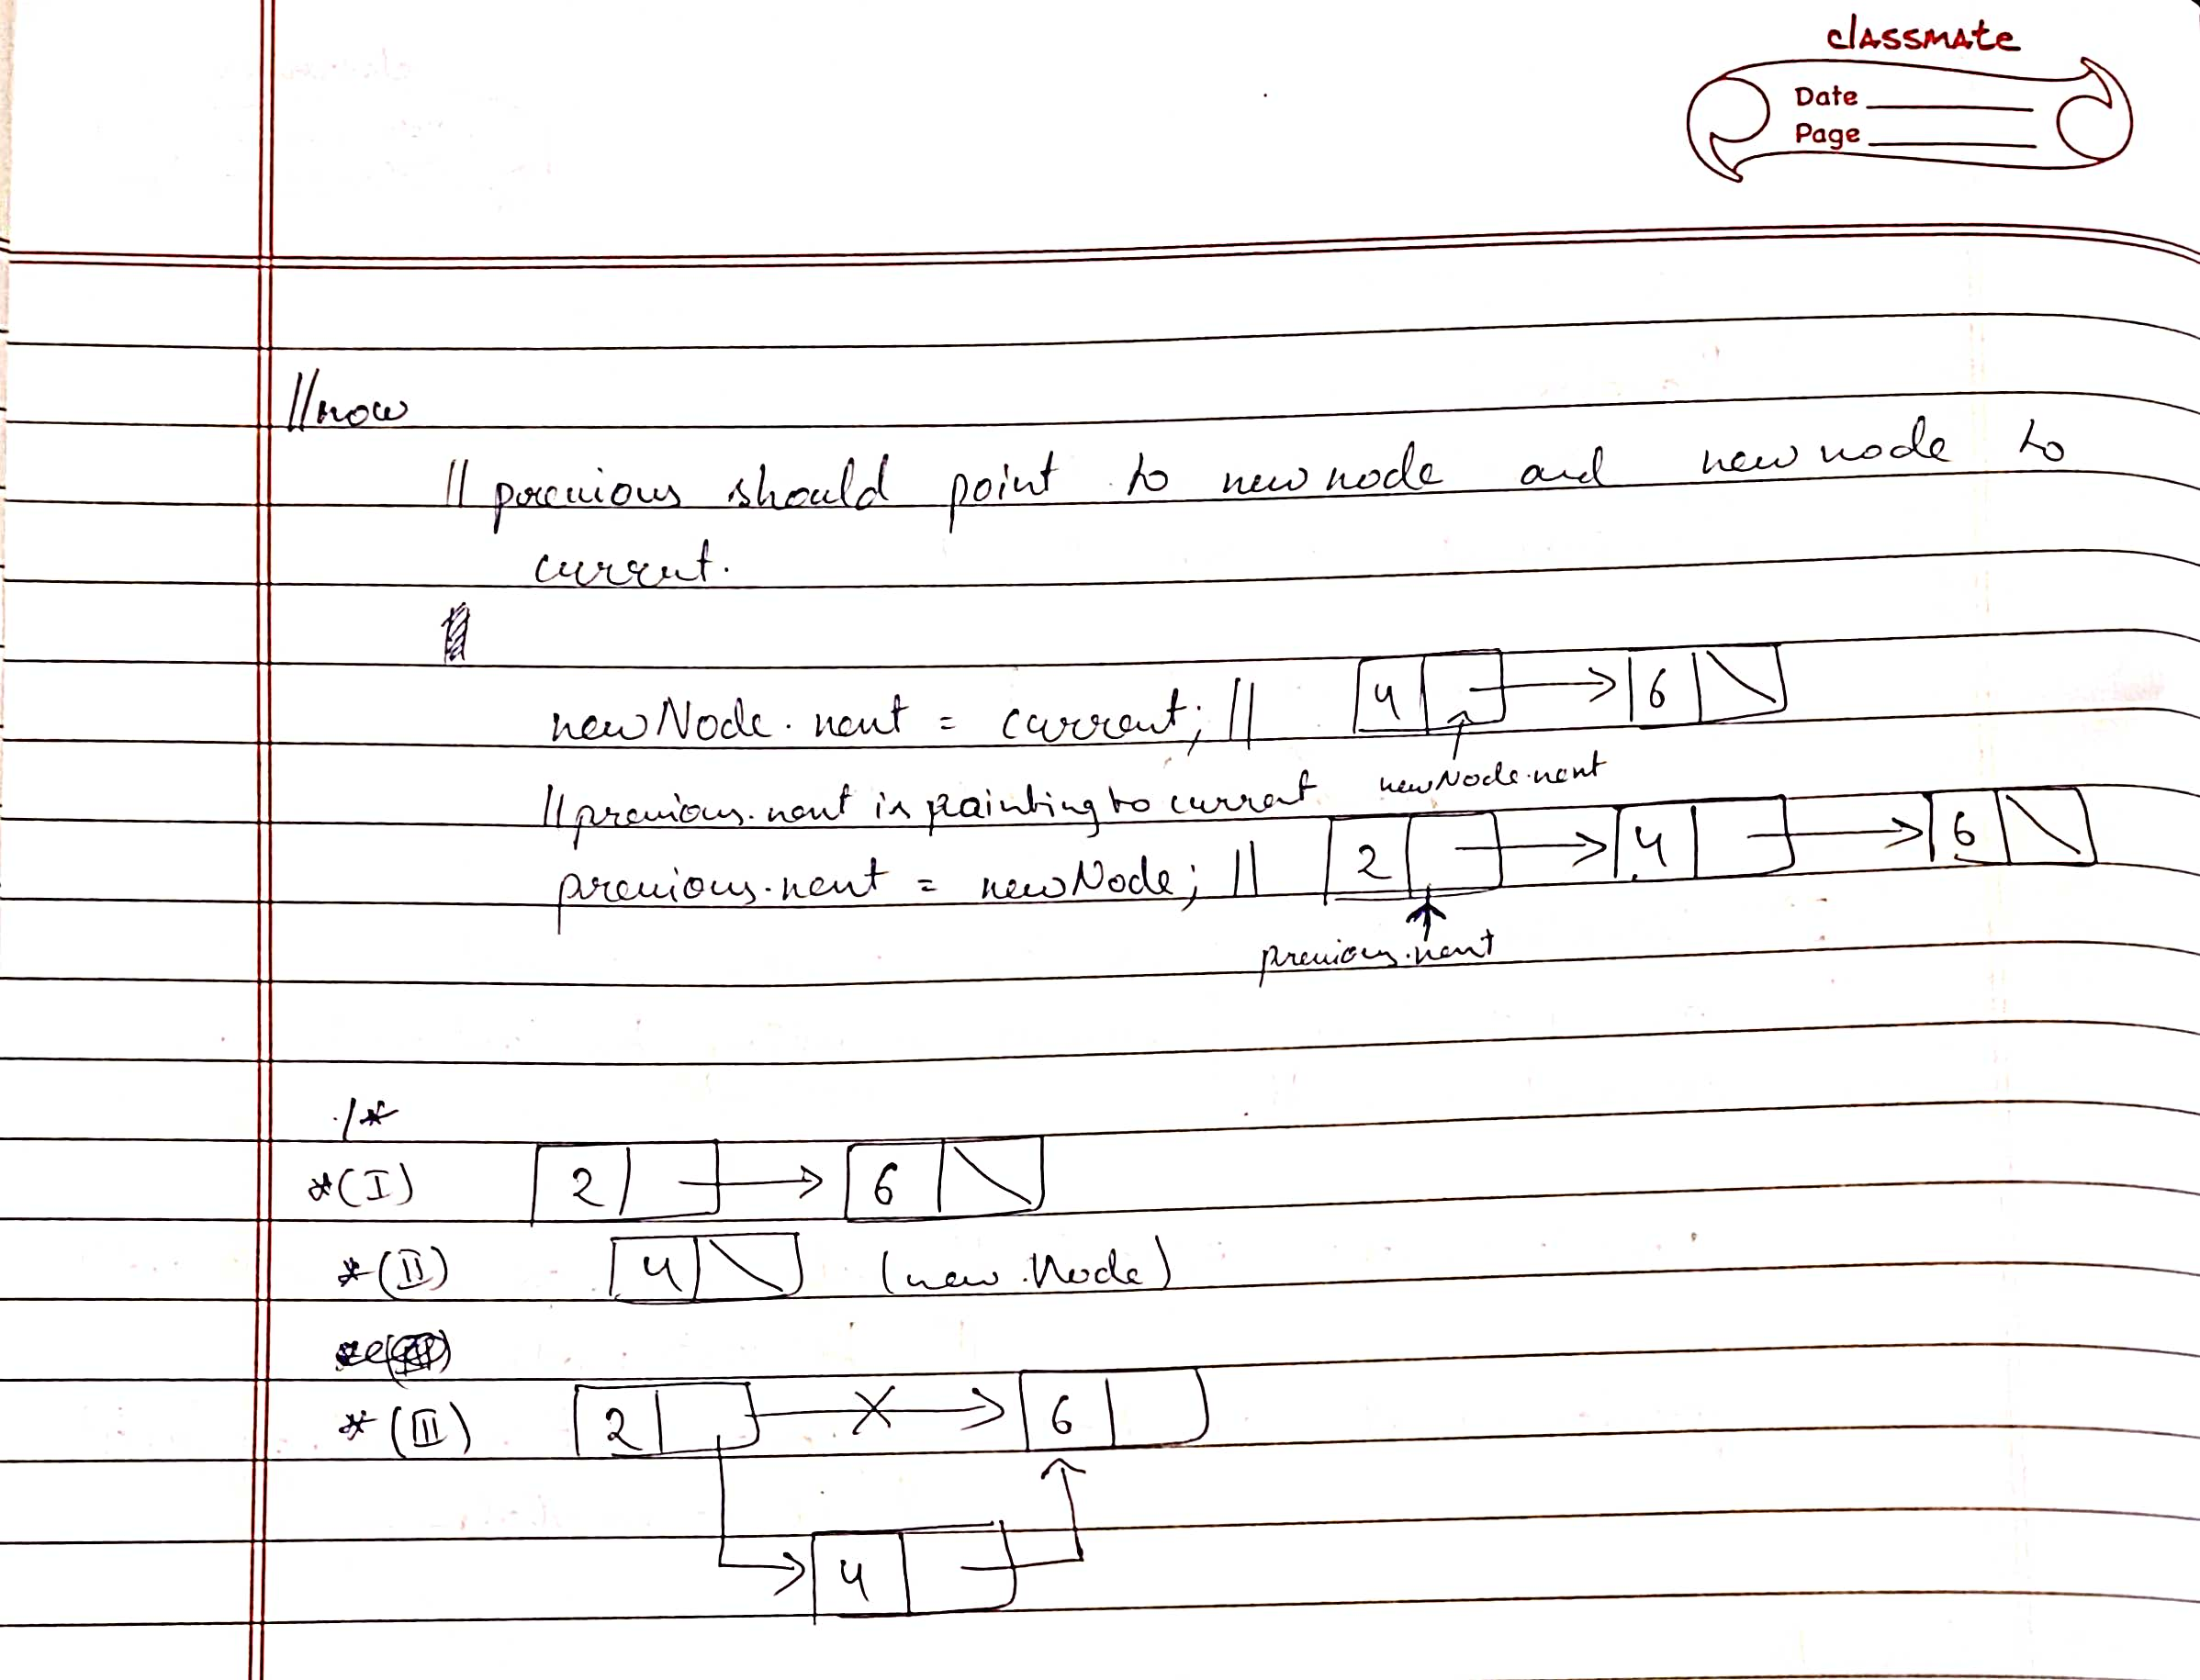 classmate
Date
Page
//now
// previous should point to new node and new node to
current.
newNode.next = current; // 4 6
newNode.next
//previous.next is pointing to current
previous.next = newNode; // 2 4 6
previous.next
/*
*(I) 2 6
*(II) 4 (new Node)
*(III) 2 X 6
4